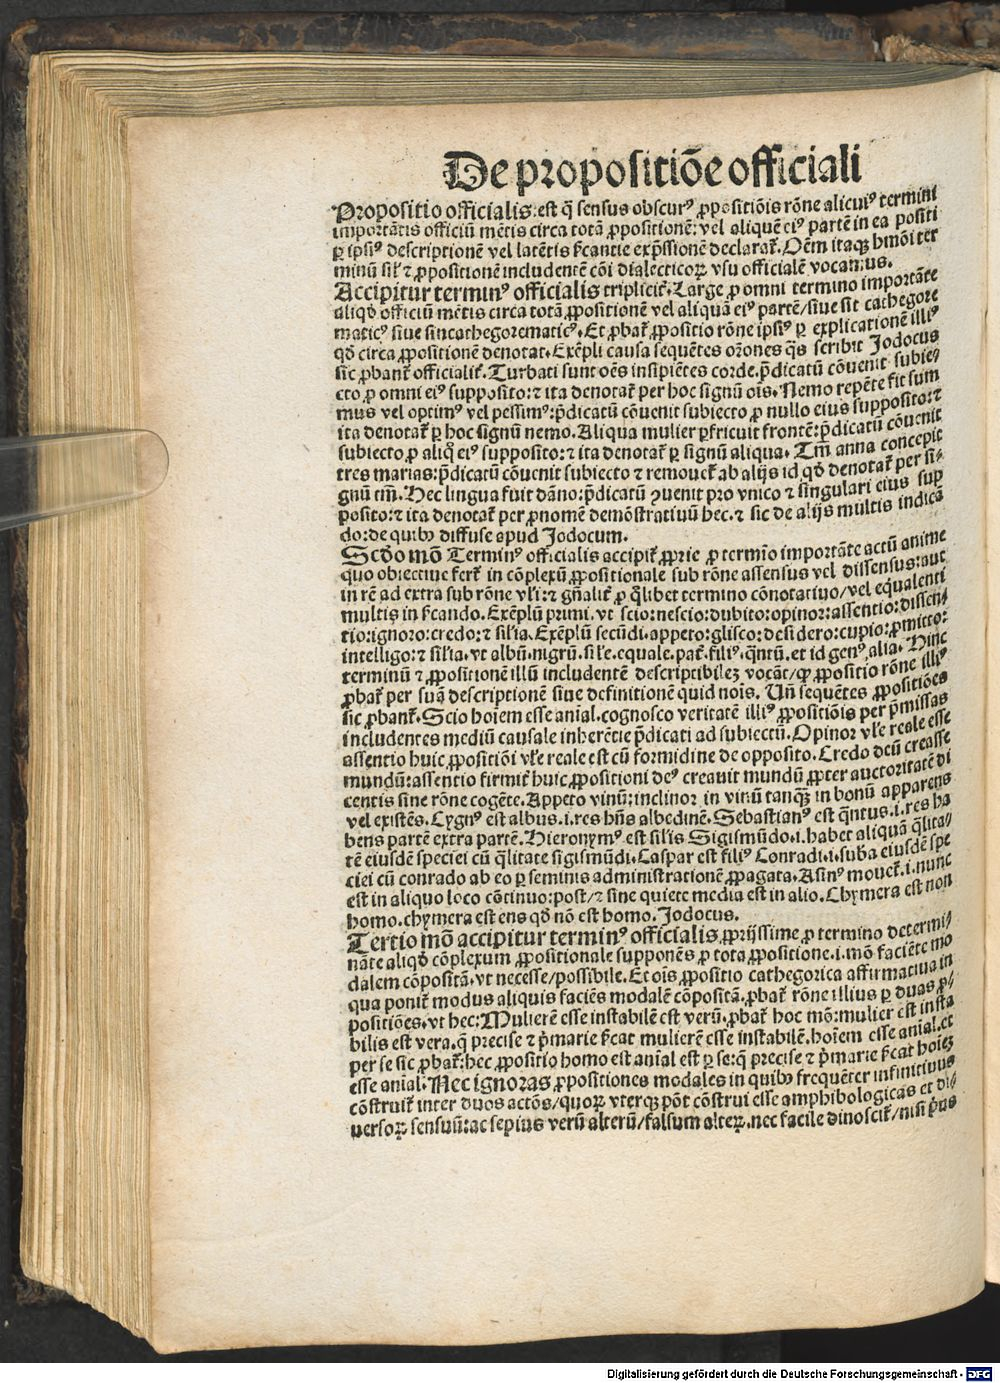 De propositiōe officiali
Propositio officialis: est q̄ sensus obscurꝰ ꝓpositiōis rōne alicuiꝰ termini
importātis officiū mētis circa totā ꝓpositionē: vel aliquē eiꝰ partē in ea positi
ꝑ ipsiꝰ descriptionē vel latētis ẜcantie exp̄ssionē declarat̄. Oēm itaqꝫ hmōi ter
minū silr̄ ⁊ ꝓpositionē includentē cōi dialecticoꝝ vsu officialē vocamus.
Accipitur terminꝰ officialis tripliciť. Large ꝓ omni termino importāte
aliqđ officiū mētis circa totā ꝓpositionē vel aliquā eiꝰ partē/siue sit cathegore
maticꝰ siue sincathegorematicꝰ. Et ꝓbat̄ ꝓpositio rōne ipsiꝰ ꝑ explicationē illiꝰ
qđ circa ꝓpositionē denotat. Exēpli causa sequētes orōnes q̄s scribit Jodocus
sic ꝓbant̄ officialiť. Turbati sunt oēs insipiētes corde. p̄dicatū cōuenit subie
cto ꝓ omni eiꝰ supposito: ⁊ ita denotat̄ per hoc signū oīs. Nemo repēte fit sum
mus vel optimꝰ vel pessimꝰ: p̄dicatū cōuenit subiecto ꝓ nullo eius supposito: ⁊
ita denotat̄ ꝑ hoc signū nemo. Aliqua mulier ꝑfricuit frontē: p̄dicatū cōuenit
subiecto ꝓ aliq̊ eiꝰ supposito: ⁊ ita denotat̄ ꝑ signū aliqua. Tm̄ anna concepit
tres marias: p̄dicatū cōuenit subiecto ⁊ remouet̄ ab alijs id qđ denotat̄ per si-
gnū tm̄. Hec lingua fuit dāno: p̄dicatū ꝯuenit pro vnico ⁊ singulari eius sup
posito: ⁊ ita denotat̄ per ꝓnomē demōstratiuū hec. ⁊ sic de alijs multis indicā
do: de quibꝰ diffuse apud Jodocum.
Scđo mō Terminꝰ officialis accipit̄ ꝓprie ꝓ termīo importāte actū anime
quo obiectiue fert̄ in cōplexū ꝓpositionale sub rōne assensus vel dissensus: aut
in rē ad extra sub rōne vl̄i: ⁊ gn̄aliť ꝓ q̄libet termino cōnotatiuo/vel equalenti
multis in ẜcando. Exēplū primi. vt scio: nescio: dubito: opinor: assentio: dissen
tio: ignoro: credo: ⁊ sil̄ia. Exēplū secūdi. appeto: glisco: desidero: cupio: ꝓmitto:
intelligo: ⁊ sil̄ia. vt albū. nigrū. sil̄e. equale. pať. filiꝰ. q̄ntū. et id genꝰ alia. Hinc
terminū ⁊ ꝓpositionē illū includentē descriptibileꝫ vocāt/ꝙ ꝓpositio rōne illiꝰ
ꝓbat̄ per suā descriptionē siue definitionē quid nois. Vn̄ sequētes ꝓpositiōes
sic ꝓbant̄. Scio hoiem esse anīal. cognosco veritatē illiꝰ ꝓpositiōis per p̄missas
includentes mediū causale inherētie p̄dicati ad subiectū. Opinor vl̄e reale esse
assentio huic ꝓpositiōi vl̄e reale est cū formidine de opposito. Credo deū creasse
mundū: assentio firmiť huic ꝓpositioni deꝰ creauit mundū ꝓpter auctoritatē di
centis sine rōne cogēte. Appeto vinū: inclinor in vinū tanqꝫ in bonū apparens
vel existēs. Cygnꝰ est albus. i. res hn̄s albedinē. Sebastianꝰ est q̄ntus. i. res ha
bens partē extra partē. Hieronymꝰ est sil̄is Sigismūdo. i. habet aliquā q̄lita-
tē eiusdē speciei cū q̄litate sigismūdi. Caspar est filiꝰ Conradi. i. suba eiusdē spe
ciei cū conrado ab eo ꝑ seminis administrationē ꝓpagata. Asinꝰ mouet̄. i. nunc
est in aliquo loco cōtinuo: post/⁊ sine quiete media est in alio. Chymera est non
homo. chymera est ens qđ nō est homo. Jodocus.
Tertio mō accipitur terminꝰ officialis, ꝓprijssime ꝓ termino determi-
nāte aliqđ cōplexum ꝓpositionale supponēs ꝓ tota ꝓpositione. i. mō faciēte mo
dalem cōpositā. vt necesse/possibile. Et oīs ꝓpositio cathegorica affirmatiua in
qua ponit̄ modus aliquis faciēs modalē cōpositā. ꝓbat̄ rōne illius ꝑ duas ꝓ-
positiōes. vt hec: Mulierē esse instabilē est verū. ꝓbat̄ hoc mō: mulier est insta
bilis est vera. q̄ precise ⁊ p̄marie ẜcat mulierē esse instabilē. hoiem esse anīal. et
per se sic ꝓbat̄: hec ꝓpositio homo est anīal est ꝑ se: q̄ precise ⁊ p̄marie ẜcat hoieꝫ
esse anīal: Nec ignoras ꝓpositiones modales in quibꝰ frequēter infinitiuus
cōstruit̄ inter duos actōs/quoꝝ vterqꝫ pōt cōstrui esse amphibologicas et di-
uersoꝝ sensuū: ac sepius verū alterū/falsum alteꝝ. nec facile dinoscit̄/nisi p̄us
Digitalisierung gefördert durch die Deutsche Forschungsgemeinschaft - DFG